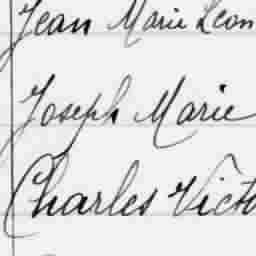 Jean Marie Leon
Joseph Marie
Charles Victo